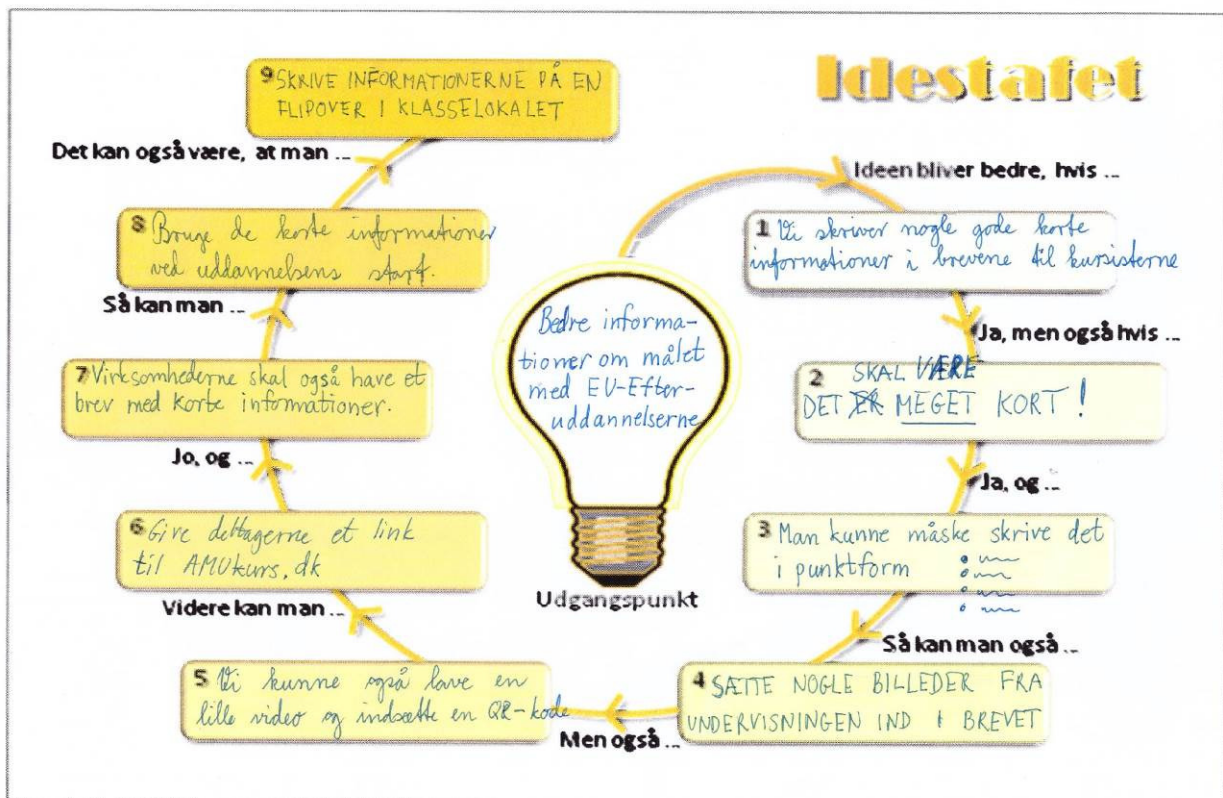 Idestafet
Bedre informa-
tioner om målet
med EV-Efter-
uddannelserne
Udgangspunkt
Ideen bliver bedre, hvis ...
1 Vi skriver nogle gode korte
informationer i brevene til kursisterne
Ja, men også hvis ...
2 SKAL VÆRE
DET ER MEGET KORT!
Ja, og ...
3 Man kunne måske skrive det
i punktform
Så kan man også ...
4 SÆTTE NOGLE BILLEDER FRA
UNDERVISNINGEN IND I BREVET
Men også ...
5 Vi kunne også lave en
lille video og indsætte en QR-kode
Videre kan man ...
6 Give deltagerne et link
til AMUkurs.dk
Jo, og ...
7 Virksomhederne skal også have et
brev med korte informationer.
Så kan man ...
8 Bruge de korte informationer
ved uddannelsens start.
Det kan også være, at man ...
9 SKRIVE INFORMATIONERNE PÅ EN
FLIPOVER I KLASSELOKALET